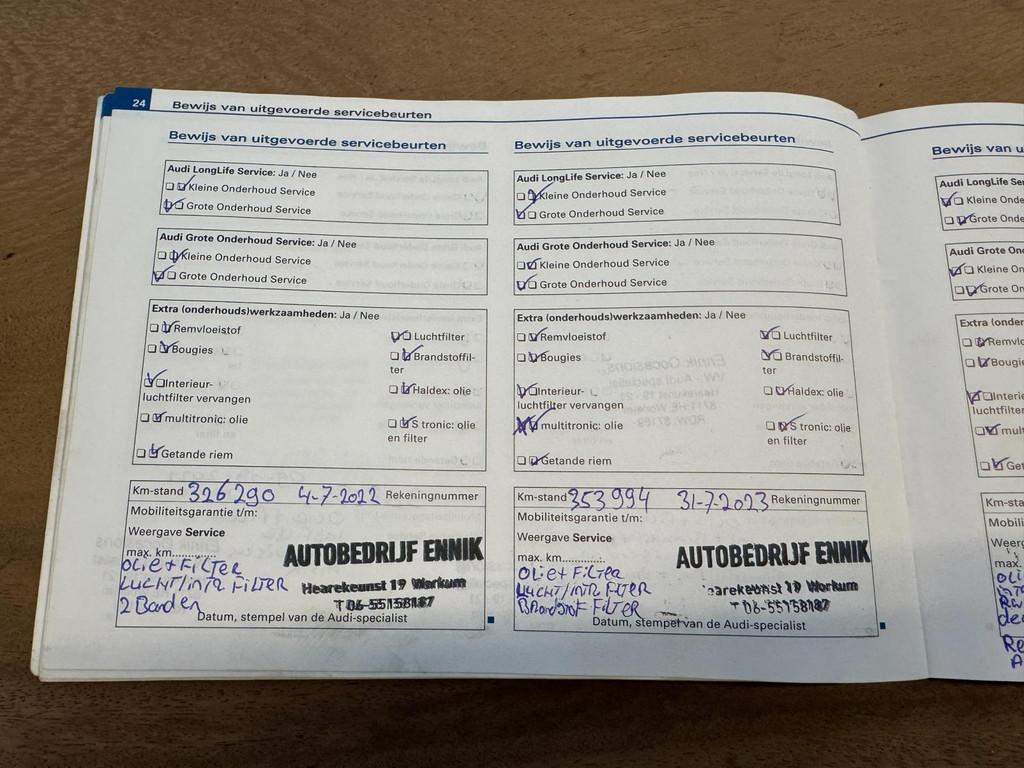 24
Bewijs van uitgevoerde servicebeurten
Bewijs van uitgevoerde servicebeurten
Audi LongLife Service: Ja / Nee
Kleine Onderhoud Service
Grote Onderhoud Service
Audi Grote Onderhoud Service: Ja / Nee
Kleine Onderhoud Service
Grote Onderhoud Service
Extra (onderhouds)werkzaamheden: Ja / Nee
Remvloeistof
Luchtfilter
Bougies
Brandstoffil-
ter
Interieur-
luchtfilter vervangen
Haldex: olie
multitronic: olie
S tronic: olie
en filter
Getande riem
Km-stand 326290 4-7-2022 Rekeningnummer
Mobiliteitsgarantie t/m:
Weergave Service
max. km.............
OLIE + FILTER
LUCHT/INTR FILTER
2 Banden
AUTOBEDRIJF ENNIK
Hearekeunst 19 Workum
T 06-55158187
Datum, stempel van de Audi-specialist
Bewijs van uitgevoerde servicebeurten
Audi LongLife Service: Ja / Nee
Kleine Onderhoud Service
Grote Onderhoud Service
Audi Grote Onderhoud Service: Ja / Nee
Kleine Onderhoud Service
Grote Onderhoud Service
Extra (onderhouds)werkzaamheden: Ja / Nee
Remvloeistof
Luchtfilter
Bougies
Brandstoffil-
ter
Interieur-
luchtfilter vervangen
Haldex: olie
multitronic: olie
S tronic: olie
en filter
Getande riem
Km-stand 353994 31-7-2023 Rekeningnummer
Mobiliteitsgarantie t/m:
Weergave Service
max. km.............
OLIE + FILTER
LUCHT/INTR FILTER
Brandstof FILTER
AUTOBEDRIJF ENNIK
Hearekeunst 19 Workum
T 06-55158187
Datum, stempel van de Audi-specialist
Bewijs van u
Audi LongLife Se
Kleine Onde
Grote Onde
Audi Grote On
Kleine On
Grote On
Extra (onder
Remvlo
Bougi
Interie
luchtfilter
mul
Get
Km-sta
Mobili
Weerg
max.